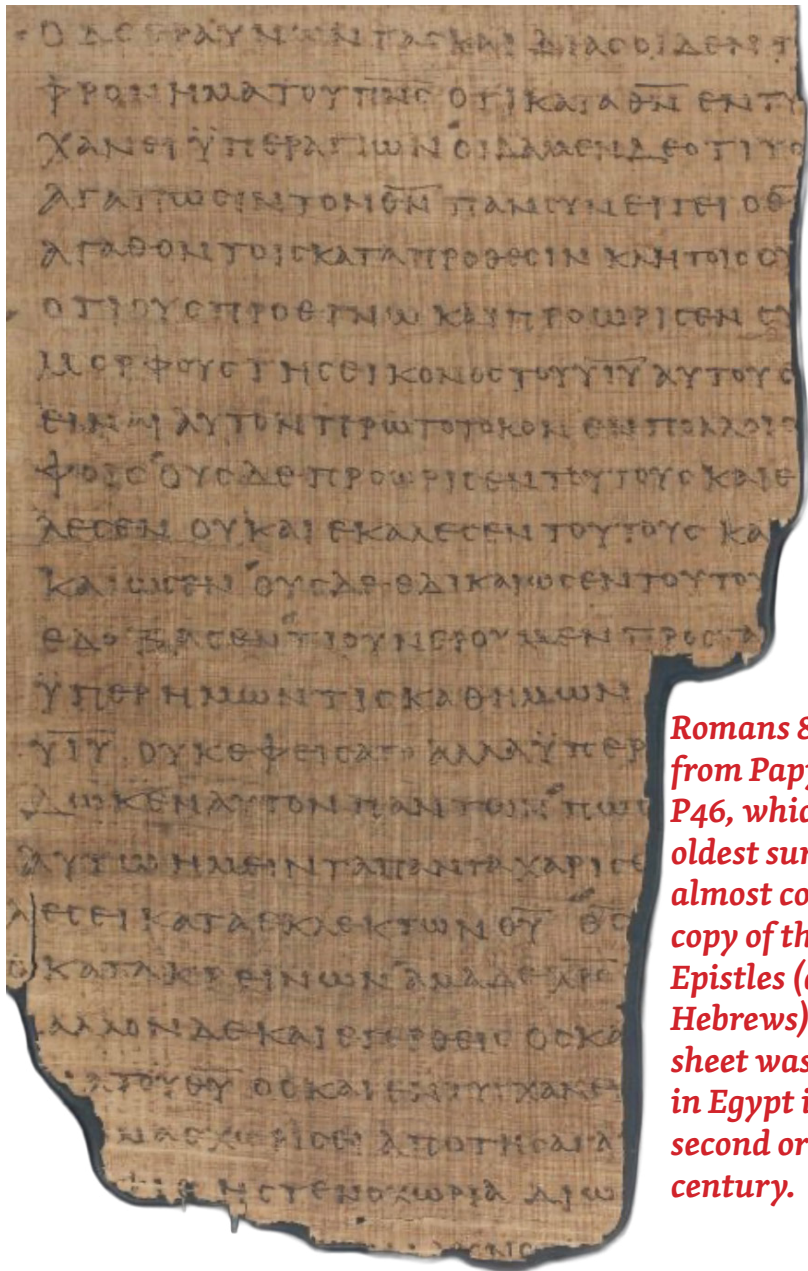 Ο ΔΕ ΕΡΑΥΝΩΝ ΤΑϹ ΚΑΡΔΙΑϹ ΟΙΔΕΝ Τ
ΦΡΟΝΗΜΑ ΤΟΥ Π̅Ν̅Ϲ̅ ΟΤΙ ΚΑΤΑ Θ̅Ν̅ ΕΝΤΥ
ΧΑΝΕΙ ΫΠΕΡ ΑΓΙΩΝ ΟΙΔΑΜΕΝ ΔΕ ΟΤΙ ΤΟ
ΑΓΑΠΩϹΙΝ ΤΟΝ Θ̅Ν̅ ΠΑΝ ϹΥΝΕΡΓΕΙ Ο Θ̅
ΑΓΑΘΟΝ ΤΟΙϹ ΚΑΤΑ ΠΡΟΘΕϹΙΝ ΚΛΗΤΟΙϹ ΟΥ
ΟΤΙ ΟΥϹ ΠΡΟΕΓΝΩ ΚΑΙ ΠΡΟΩΡΙϹΕΝ ϹΥ
ΜΟΡΦΟΥϹ ΤΗϹ ΕΙΚΟΝΟϹ ΤΟΥ Υ̅Ι̅Υ̅ ΑΥΤΟΥ Ε
ΕΙΝΑΙ ΑΥΤΟΝ ΠΡΩΤΟΤΟΚΟΝ ΕΝ ΠΟΛΛΟΙϹ
ΦΟΙϹ ΟΥϹ ΔΕ ΠΡΟΩΡΙϹΕΝ ΤΟΥΤΟΥϹ ΚΑΙ Ε
ΛΕϹΕΝ ΟΥ ΚΑΙ ΕΚΑΛΕϹΕΝ ΤΟΥΤΟΥϹ ΚΑ
ΚΑΙΩϹΕΝ ΟΥϹ ΔΕ ΕΔΙΚΑΙΩϹΕΝ ΤΟΥΤΟΥ
ΕΔΟΞΑϹΕΝ ΤΙ ΟΥΝ ΕΡΟΥΜΕΝ ΠΡΟϹ ΤΑ
ΫΠΕΡ ΗΜΩΝ ΤΙϹ ΚΑΘ ΗΜΩΝ
Υ̅Ι̅Υ̅ ΟΥΚ ΕΦΕΙϹΑΤΟ ΑΛΛΑ ΫΠΕΡ
ΔΩΚΕΝ ΑΥΤΟΝ ΠΑΝΤΩΝ ΠΩϹ
ΑΥΤΩ ΗΜΕΙΝ ΤΑ ΠΑΝΤΑ ΧΑΡΙϹΕ
ΛΕϹΕΙ ΚΑΤΑ ΕΚΛΕΚΤΩΝ Θ̅Υ̅ Θ̅Ϲ̅
Ο ΚΑΤΑΚΡΕΙΝΩΝ ΑΜΑ ΔΕ Χ̅Ρ̅Ϲ̅
ΑΛΛΟΝ ΔΕ ΚΑΙ ΕΓΕΡΘΕΙϹ ΟϹ ΚΑ
ΤΟΥ Θ̅Υ̅ ΟϹ ΚΑΙ ΕΝΤΥΓΧΑΝΕΙ
ΜΑϹ ΧΩΡΙϹΕΙ ΑΠΟ ΤΗϹ ΑΓΑ
Η ϹΤΕΝΟΧΩΡΙΑ Η ΔΙΩ
Romans 8
from Pap
P46, whic
oldest sur
almost co
copy of th
Epistles (
Hebrews)
sheet was
in Egypt i
second or
century.